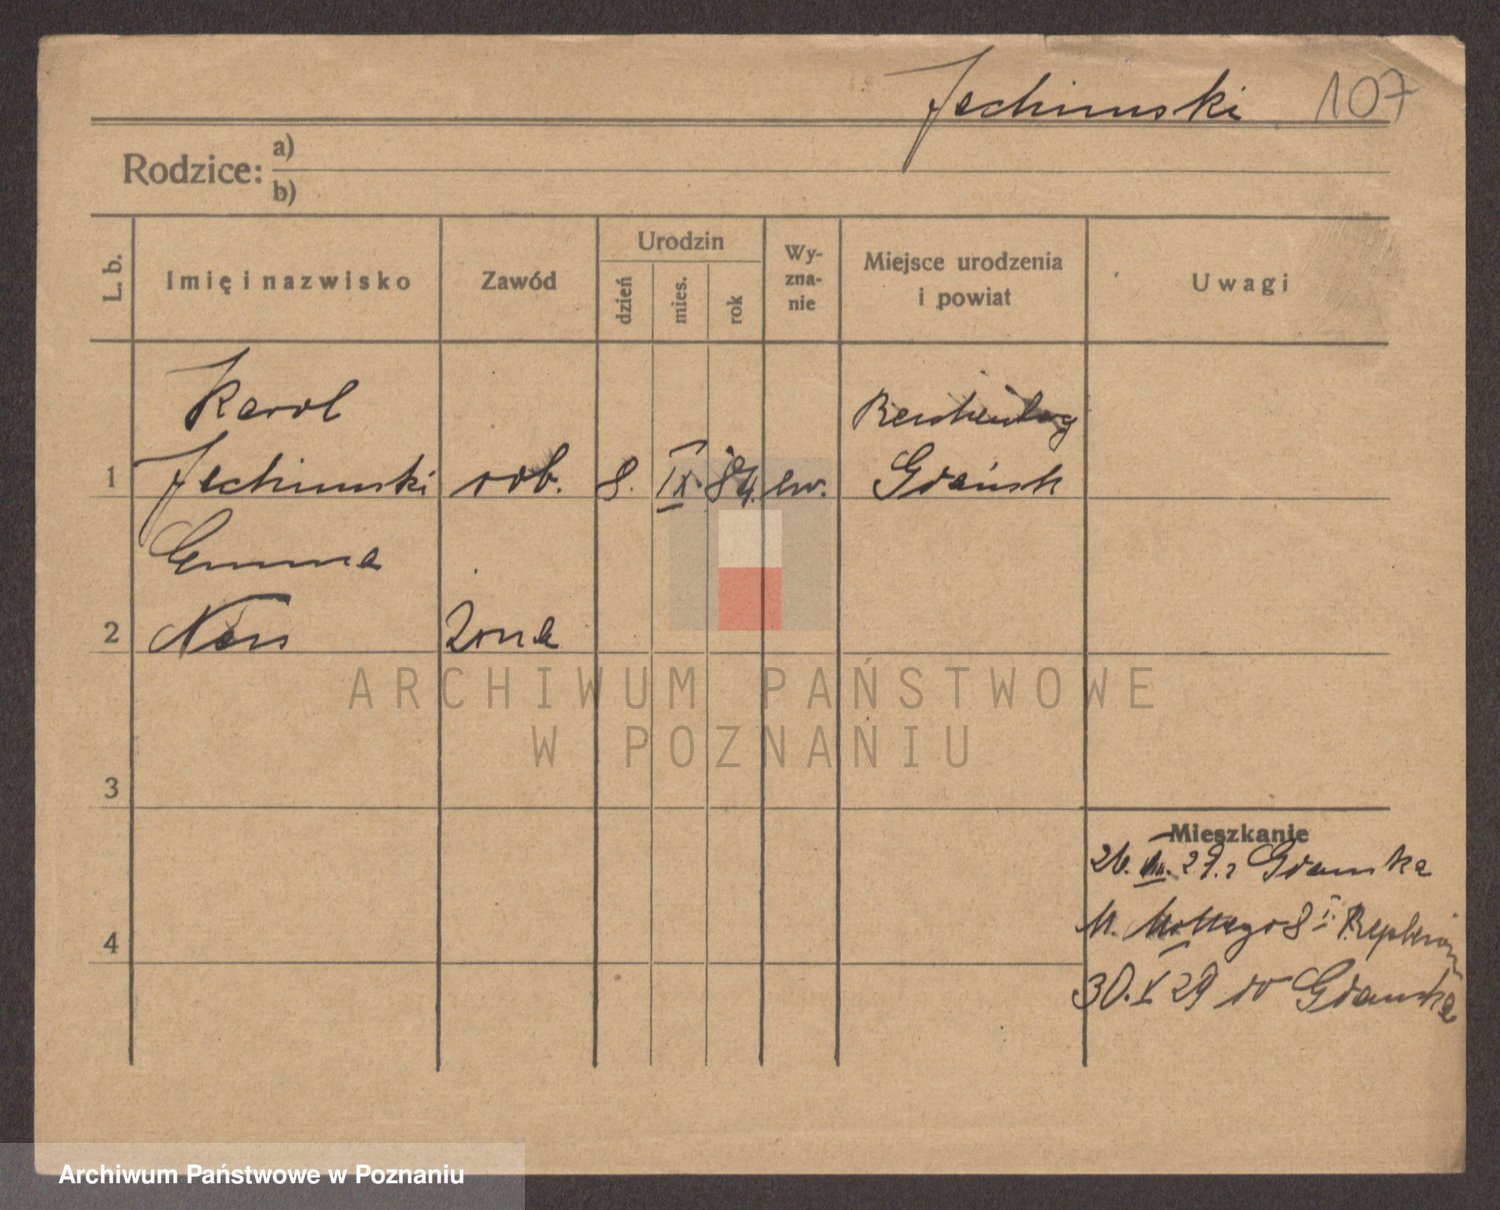 Jechimski 107
Rodzice: a)
b)
L. b.
Imię i nazwisko
Zawód
Urodzin
dzień
mies.
rok
Wy-
zna-
nie
Miejsce urodzenia
i powiat
Uwagi
Karol
1 Jechimski rob. 8. IX. 84. ew. Gdańsk
Emma
2 żona
3
4
Mieszkanie
26. 29. z Gdańska
M. 8 I
30. X 29 do Gdańska
ARCHIWUM PAŃSTWOWE
W POZNANIU
Archiwum Państwowe w Poznaniu